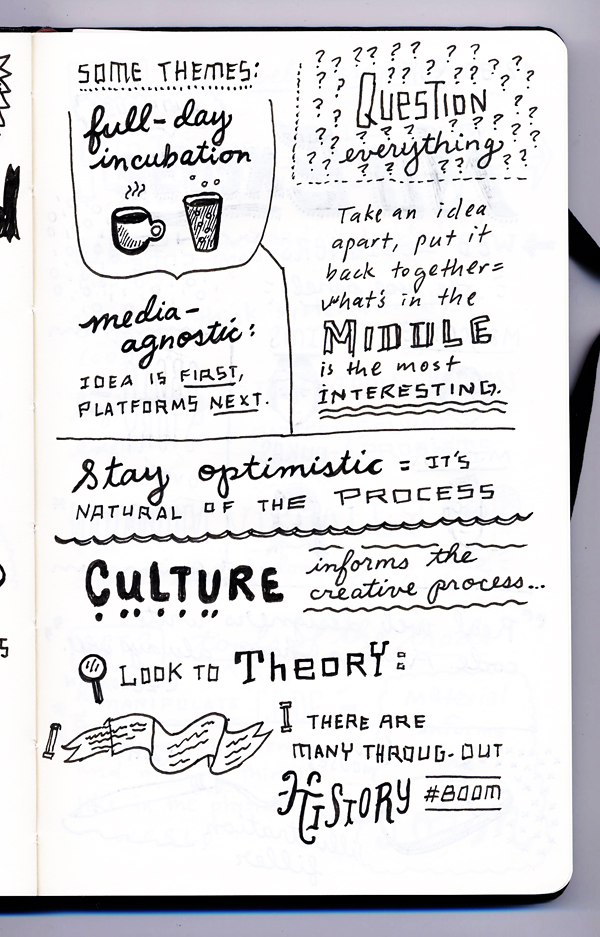 SOME THEMES:
full-day
incubation
media-
agnostic:
IDEA IS FIRST,
PLATFORMS NEXT.
? ?? ? ? ?
QUESTION
everything
Take an idea
apart, put it
back together=
what's in the
MIDDLE
is the most
INTERESTING.
Stay optimistic = IT'S
NATURAL OF THE PROCESS
CULTURE
informs the
creative process...
LOOK TO THEORY:
THERE ARE
MANY THROUG-OUT
HISTORY #BOOM